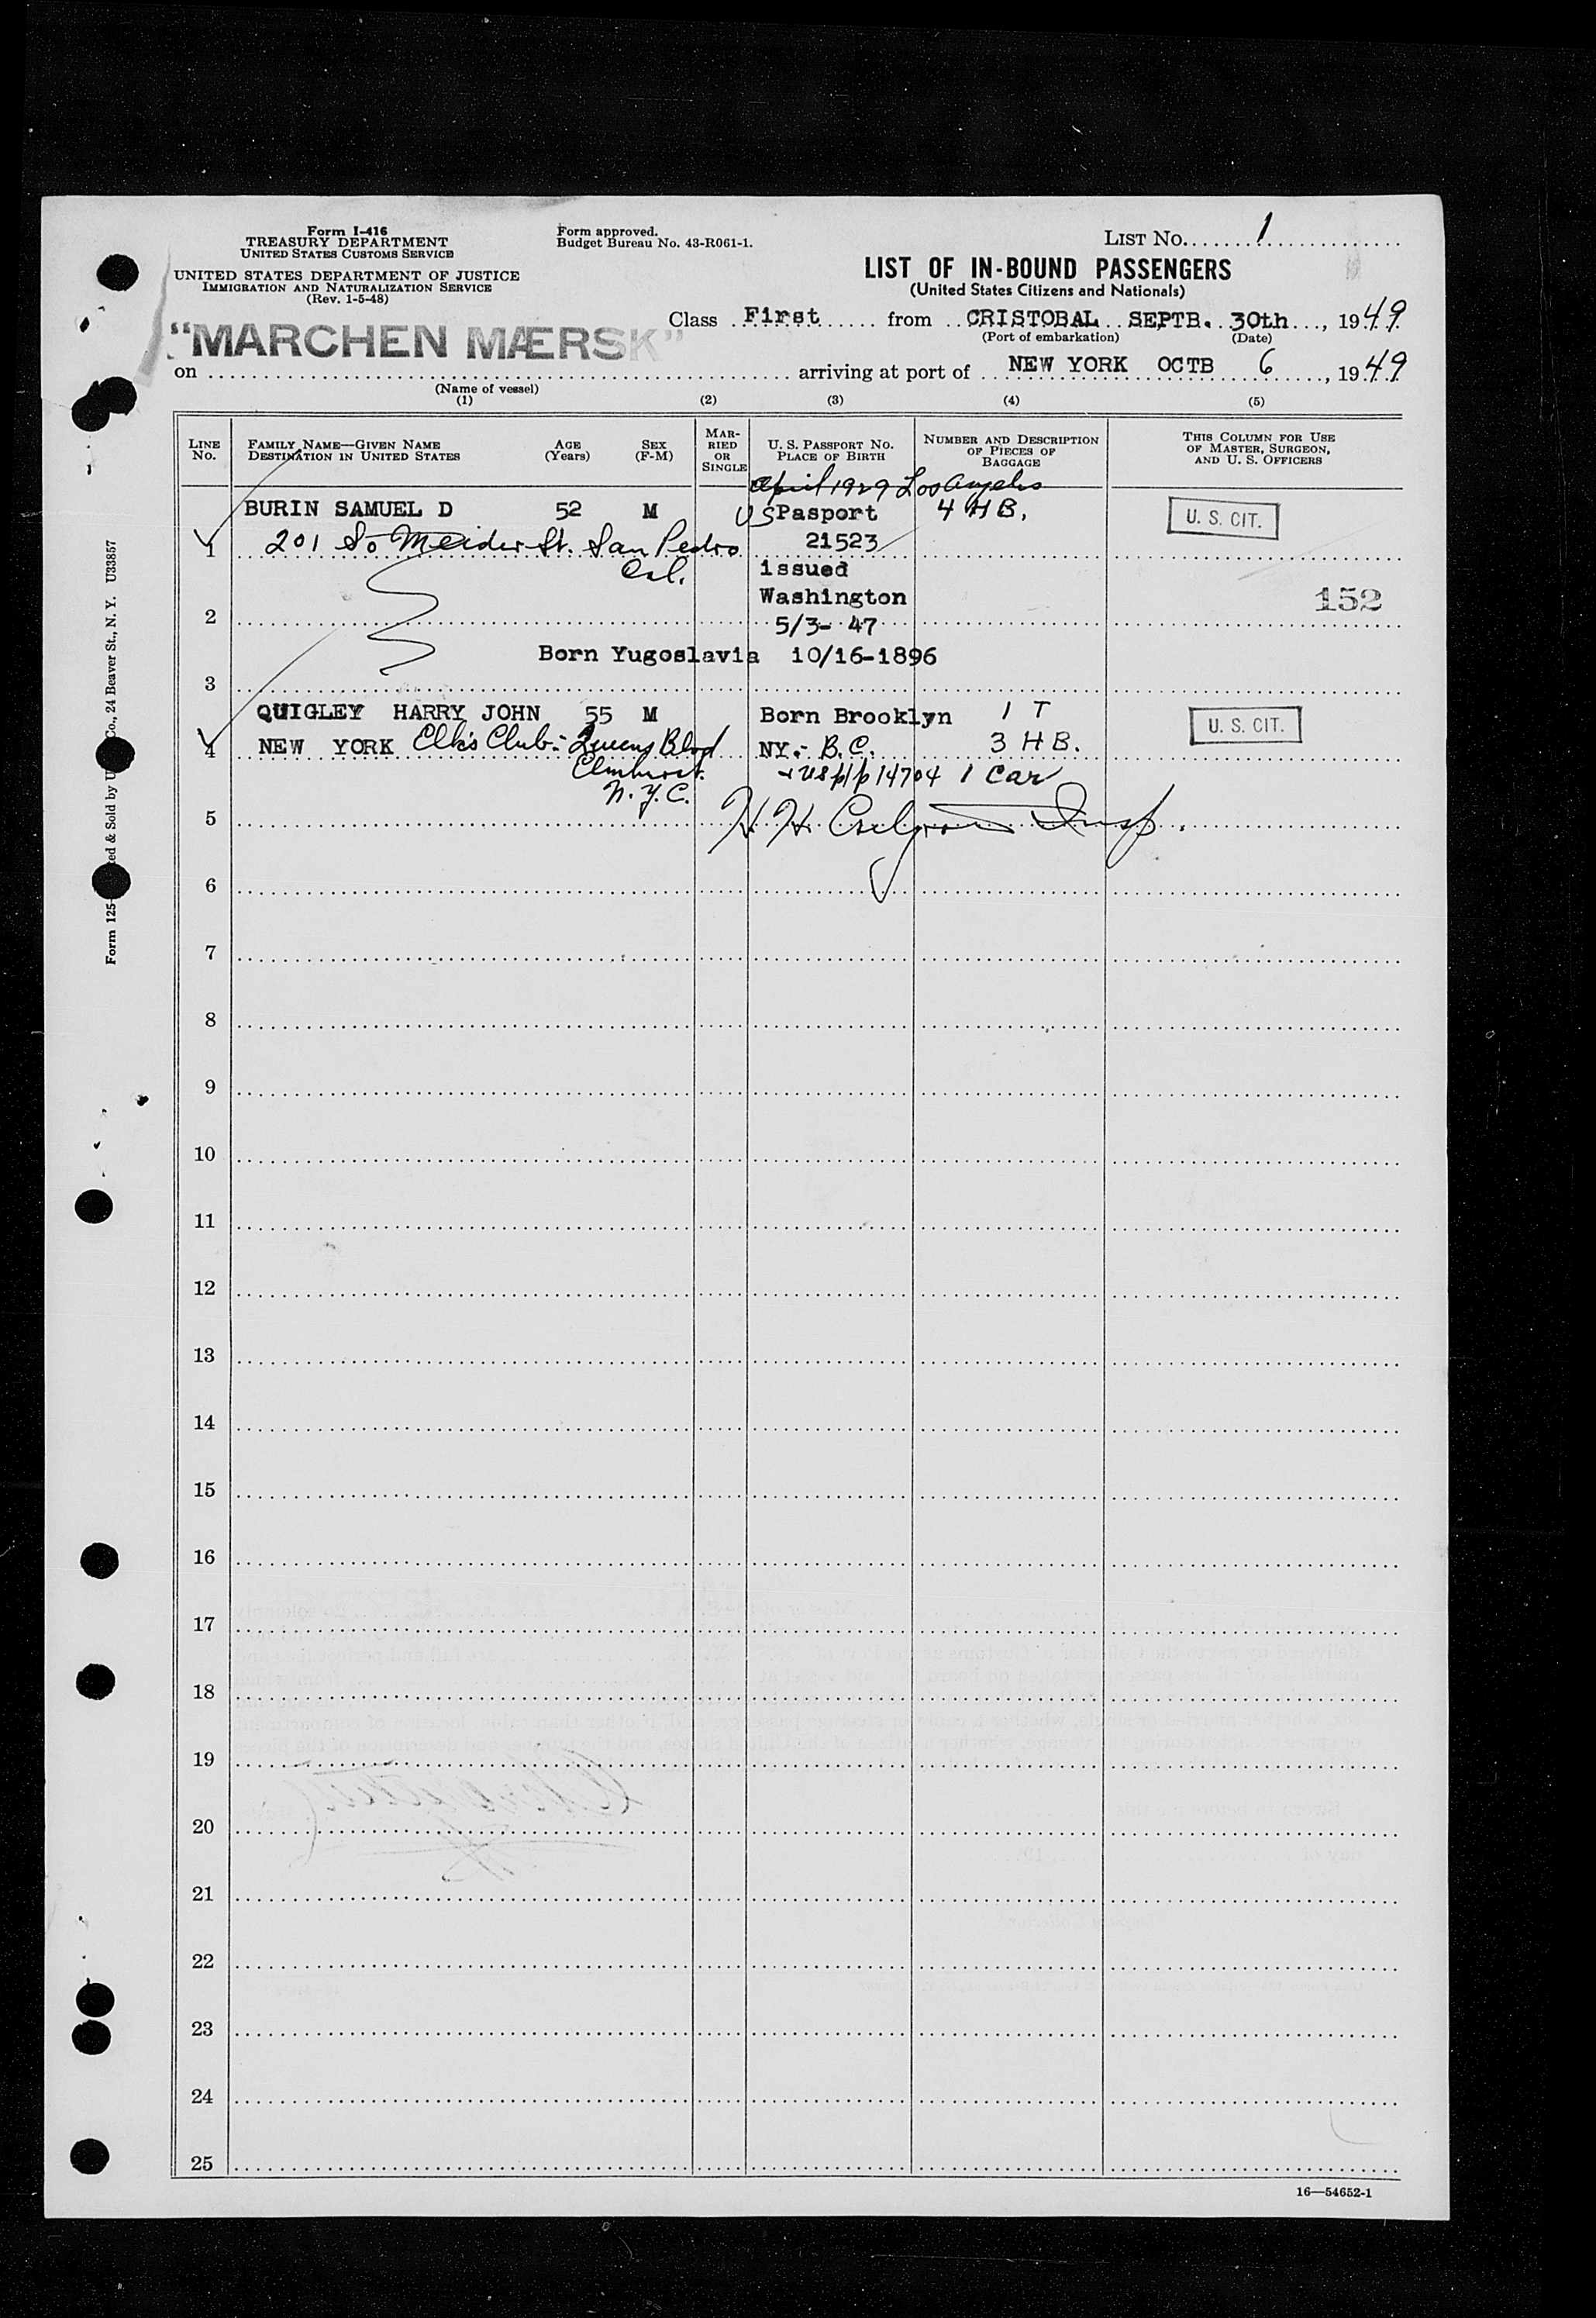 Form I-416
TREASURY DEPARTMENT
UNITED STATES CUSTOMS SERVICE
UNITED STATES DEPARTMENT OF JUSTICE
IMMIGRATION AND NATURALIZATION SERVICE
(Rev. 1-5-48)
Form approved.
Budget Bureau No. 43-R061-1.
LIST NO. 1
LIST OF IN-BOUND PASSENGERS
(United States Citizens and Nationals)
Class First from CRISTOBAL SEPTB. 30th, 1949
(Port of embarkation) (Date)
"MARCHEN MÆRSK"
on arriving at port of NEW YORK OCTB 6, 1949
(Name of vessel)
(1) (2) (3) (4) (5)
LINE NO.
FAMILY NAME—GIVEN NAME
DESTINATION IN UNITED STATES
AGE (Years)
SEX (F-M)
MARRIED OR SINGLE
U. S. PASSPORT NO.
PLACE OF BIRTH
NUMBER AND DESCRIPTION
OF PIECES OF
BAGGAGE
THIS COLUMN FOR USE
OF MASTER, SURGEON,
AND U. S. OFFICERS
April 1929 Los Angeles
BURIN SAMUEL D 52 M US Pasport 4 HB. U. S. CIT.
1 201 So St. San Pedro 21523
Cal. issued
Washington 152
2 5/3- 47
Born Yugoslavia 10/16-1896
3
QUIGLEY HARRY JOHN 55 M Born Brooklyn 1 T U. S. CIT.
4 NEW YORK Elk's Club.- Queens Blvd NY.- B.C. 3 HB.
Elmhurst. US p/p 14704 1 Car
N.Y.C.
5 H. H. Insp.
6
7
8
9
10
11
12
13
14
15
16
17
18
19
20
21
22
23
24
25
16—54652-1
Form 125 ed & Sold by U Co., 24 Beaver St., N. Y. U33857